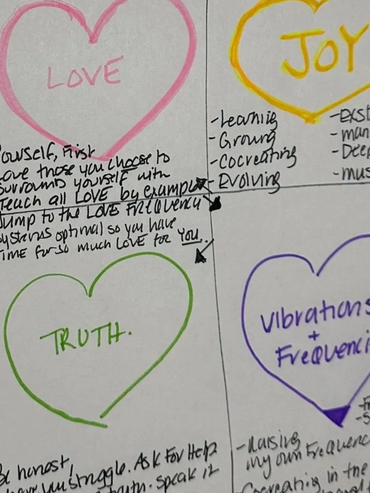 LOVE
yourself, First
Love those you choose to
surround yourself with
Teach all LOVE by example
Jump to the LOVE Frequency
systems optimal so you have
time for so much LOVE for YOU.
JOY
- Learning
- Growing
- Cocreating
- Evolving
- man
- Deep
- mus
TRUTH.
Vibrations
+
Frequenci
Be honest,
struggle. Ask For Help
truth. Speak it
- Raising
my own Frequenc
Cocreating in the